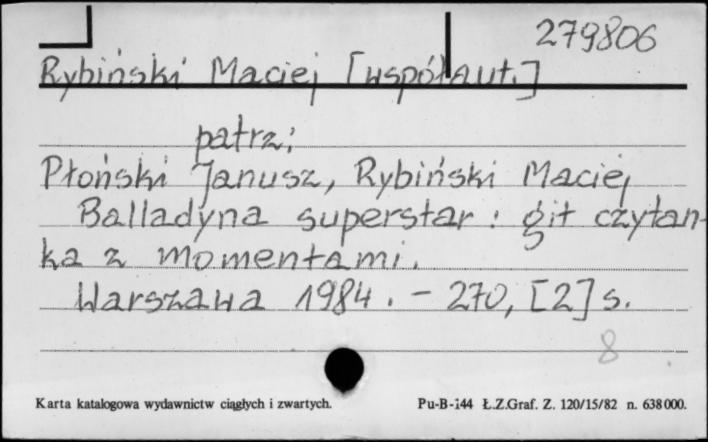 279806
Rybiński Maciej [współaut.]
patrz:
Płoński Janusz, Rybiński Maciej
Balladyna superstar : git czytan-
ka z momentami.
Warszawa 1984. - 270, [2] s.
8
Karta katalogowa wydawnictw ciągłych i zwartych. Pu-B-144 Ł.Z.Graf. Z. 120/15/82 n. 638000.